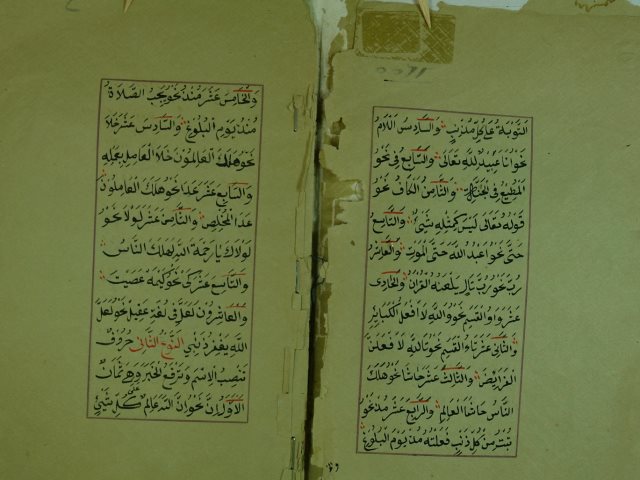 التَّوْبَةُ عَلٰى كُلِّ مُذْنِبٍ وَالسَّادِسُ اَللَّامُ
نَحْوُ اَنَا عَبِيدٌ لِلّٰهِ تَعَالٰى وَالسَّابِعُ فِى نَحْوُ
الْمُطِيعُ فِى الْجَنَّةِ وَالثَّامِنُ الْكَافُ نَحْوُ
قَوْلُهُ تَعَالٰى لَيْسَ كَمِثْلِهِ شَىْءٌ وَالتَّاسِعُ
حَتّٰى نَحْوُ اَعْبُدُ اللّٰهَ حَتَّى الْمَوْتِ وَالْعَاشِرُ
رُبَّ نَحْوُ رُبَّ تَالٍ يَلْعَنُهُ الْقُرْاٰنُ وَالْحَادِى
عَشَرَ وَاوُ الْقَسَمِ نَحْوُ وَاللّٰهِ لَا اَفْعَلُ الْكَبَائِرَ
وَالثَّانِى عَشَرَ تَاءُ الْقَسَمِ نَحْوُ تَاللّٰهِ لَاَفْعَلَنَّ
الْفَرَائِضَ وَالثَّالِثَ عَشَرَ حَاشَا نَحْوُ هَلَكَ
النَّاسُ حَاشَا الْعَالِمِ وَالرَّابِعَ عَشَرَ مُذْ نَحْوُ
تُبْتُ مِنْ كُلِّ ذَنْبٍ فَعَلْتُهُ مُذْ يَوْمِ الْبُلُوغِ
وَالْخَامِسَ عَشَرَ مُنْذُ نَحْوُ يَجِبُ الصَّلَاةُ
مُنْذُ يَوْمِ الْبُلُوغِ وَالسَّادِسَ عَشَرَ خَلَا
نَحْوُ هَلَكَ الْعَالِمُونَ خَلَا الْعَامِلِ بِعِلْمِهِ
وَالسَّابِعَ عَشَرَ عَدَا نَحْوُ هَلَكَ الْعَامِلُونَ
عَدَا الْمُخْلِصِ وَالثَّامِنَ عَشَرَ لَوْلَا نَحْوُ
لَوْلَاكَ يَا رَحْمَةَ اللّٰهِ لَهَلَكَ النَّاسُ
وَالتَّاسِعَ عَشَرَ كَىْ نَحْوُ كَيْمَهْ عَصَيْتَ
وَالْعِشْرُونَ لَعَلَّ فِى لُغَةِ عُقَيْلٍ نَحْوُ لَعَلَّ
اللّٰهِ يَغْفِرُ ذَنْبِى اَلنَّوْعُ الثَّانِى حُرُوفٌ
تَنْصِبُ الْاِسْمَ وَتَرْفَعُ الْخَبَرَ وَهِىَ ثَمَانٌ
اَلْاَوَّلُ اِنَّ نَحْوُ اِنَّ اللّٰهَ عَالِمُ كُلِّ شَىْءٍ